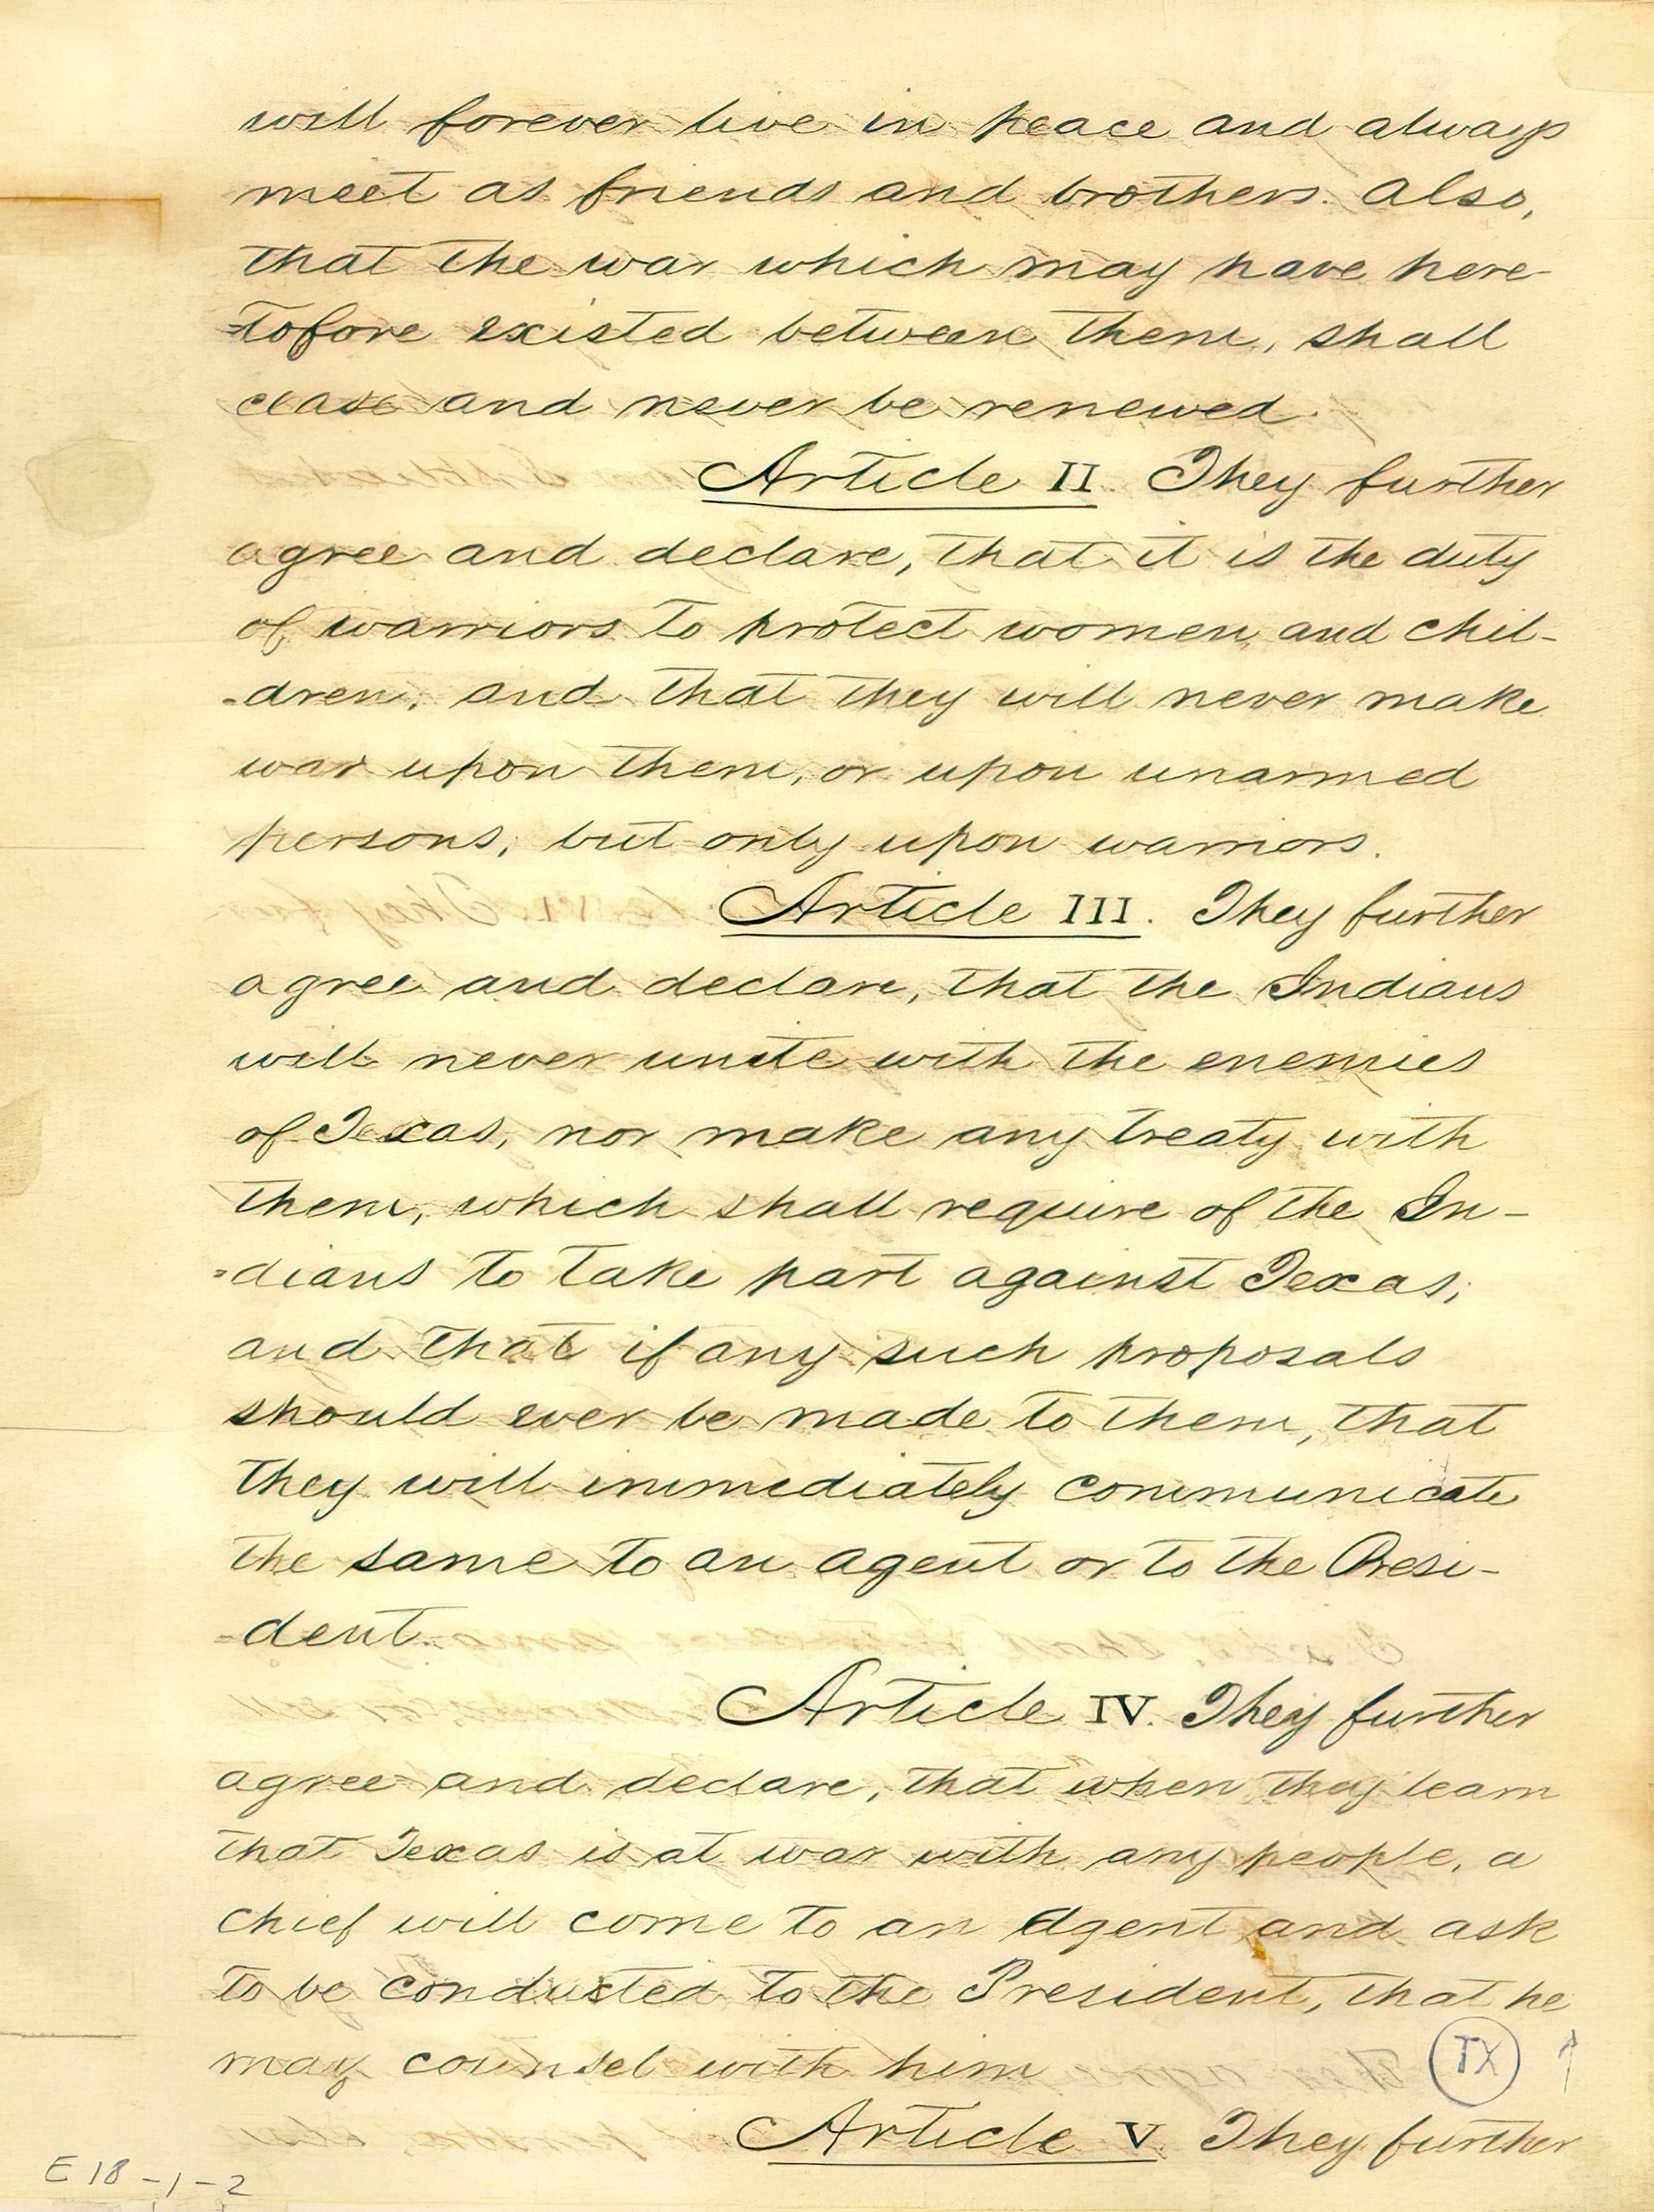 will forever live in peace and always
meet as friends and brothers. Also,
that the war which may have here-
=tofore existed between them, shall
cease and never be renewed.
Article II. They further
agree and declare, that it is the duty
of warriors to protect women and chil-
-dren, and that they will never make
war upon them, or upon unarmed
persons; but only upon warriors.
Article III. They further
agree and declare, that the Indians
will never unite with the enemies
of Texas, nor make any treaty with
them, which shall require of the In-
=dians to take part against Texas;
and that if any such proposals
should ever be made to them, that
they will immediately communicate
the same to an agent or to the Presi-
-dent.
Article IV. They further
agree and declare, that when they learn
that Texas is at war with any people, a
chief will come to an Agent and ask
to be conducted to the President, that he
may counsel with him
TX ↑
Article V. They further
E18-1-2